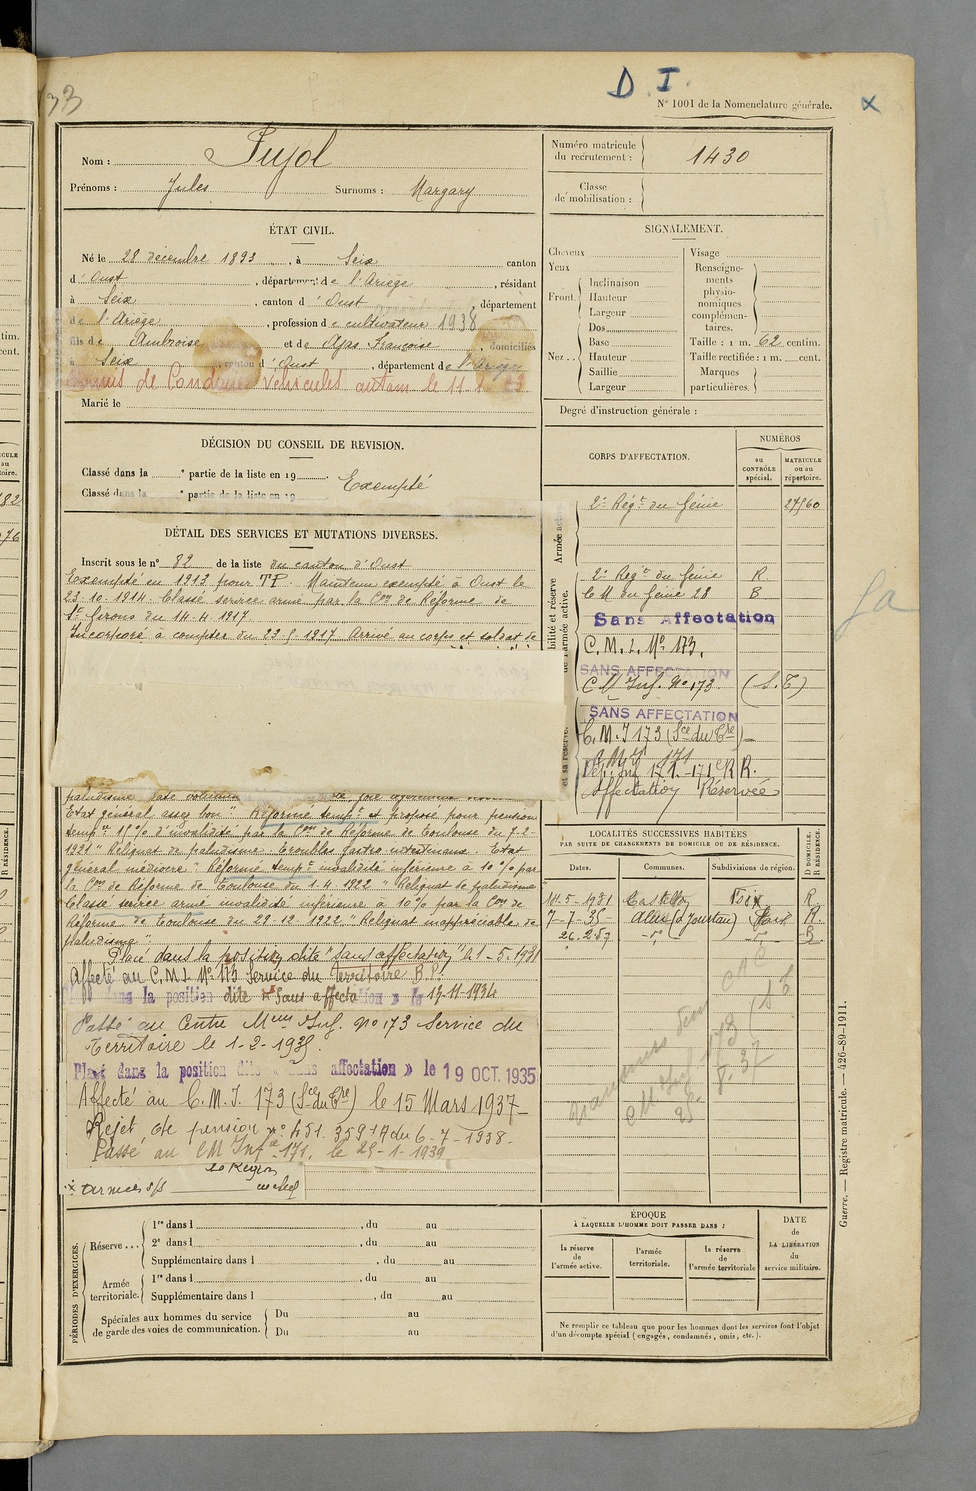 33
D. I.
N° 1001 de la Nomenclature générale.
x
Nom : Pujol
Prénoms : Jules Surnoms : Margary
Numéro matricule du recrutement : 1430
Classe de mobilisation :
ÉTAT CIVIL.
Né le 28 décembre 1893, à Seix canton
d'Oust, département de l'Ariège, résidant
à Seix, canton d'Oust, département
de l'Ariège, profession de cultivateur 1938
fils de Ambroise et de Ajas Françoise, domiciliés
à Seix, canton d'Oust, département de l'Ariège
Permis de Conduire Véhicules autom le 11
Marié le
SIGNALEMENT.
Cheveux
Yeux
Front. Inclinaison
Hauteur
Largeur
Nez.. Dos
Base
Hauteur
Saillie
Largeur
Visage
Renseignements physionomiques complémentaires.
Taille : 1 m. 62 centim.
Taille rectifiée : 1 m. cent.
Marques particulières.
Degré d'instruction générale :
DÉCISION DU CONSEIL DE REVISION.
Classé dans la ° partie de la liste en 19
Classé dans la ° partie de la liste en 19
Exempté
DÉTAIL DES SERVICES ET MUTATIONS DIVERSES.
Inscrit sous le n° 82 de la liste du canton d'Oust
Exempté en 1913 pour TP. Maintenu exempté à Oust le
23-10-1914. Classé service armé par la Con de Réforme de
St Girons du 14-4-1917
Incorporé à compter du 23-5-1917 Arrivé au corps et soldat de
paludisme
Etat général assez bon". Réformé tempre et proposé pour pension
tempre 15% d'invalidité par la Con de Réforme de Toulouse du 7-2-
1921 "Reliquat de paludisme. Troubles gastro intestinaux. Etat
général médiocre". Réformé tempre invalidité inférieure à 10% par
la Con de Réforme de Toulouse du 1-4-1922 "Reliquat de paludisme"
Classé service armé invalidité inférieure à 10% par la Con de
Réforme de Toulouse du 22-12-1922 "Reliquat inappréciable de
paludisme".
Placé dans la position dite "sans affectation" 21-5-1931
Affecté au C.M.I. N° 173 Service du Territoire B.P.
dans la position dite « Sans affectation » le 13-11-1934
Passé au Centre Meur d'Inf. n° 173 Service du
Territoire le 1-2-1935.
Placé dans la position dite « Sans affectation » le 19 OCT. 1935
Affecté au C.M.I. 173 (Sce du Tre) le 15 Mars 1937
Rejet de pension n° 451.359 A du 6-7-1938.
Passé au CM Infie 171, le 25-1-1939
Région
armes s/s
CORPS D'AFFECTATION.
NUMÉROS
au CONTRÔLE spécial.
MATRICULE ou au répertoire.
Armée active.
2e Régt du Génie 27960
2e Régt du Génie R
C M du Génie 28 B
Sans Affectation
C.M.I. N° 173.
SANS AFFECTATION
C M Inf. N° 173. (S.T)
SANS AFFECTATION
C.M.I 173 (Sce du Tre)
C M I 171
Dépôt Inf 171 - 171e R R.
Affectation Réservée
LOCALITÉS SUCCESSIVES HABITÉES
PAR SUITE DE CHANGEMENTS DE DOMICILE OU DE RÉSIDENCE.
Dates. Communes. Subdivisions de région. D DOMICILE. R RÉSIDENCE.
11-5-1931 Foix R
7-7-35 R
ÉPOQUE
À LAQUELLE L'HOMME DOIT PASSER DANS :
la réserve de l'armée active.
l'armée territoriale.
la réserve de l'armée territoriale
DATE de LA LIBÉRATION du service militaire.
Ne remplir ce tableau que pour les hommes dont les services font l'objet
d'un décompte spécial (engagés, condamnés, omis, etc.).
PÉRIODES D'EXERCICES.
Réserve... 1re dans l , du au
2e dans l , du au
Supplémentaire dans l , du au
Armée territoriale. 1re dans l , du au
Supplémentaire dans l , du au
Spéciales aux hommes du service de garde des voies de communication. Du au
Du au
Guerre. — Registre matricule. — 426-89-1911.